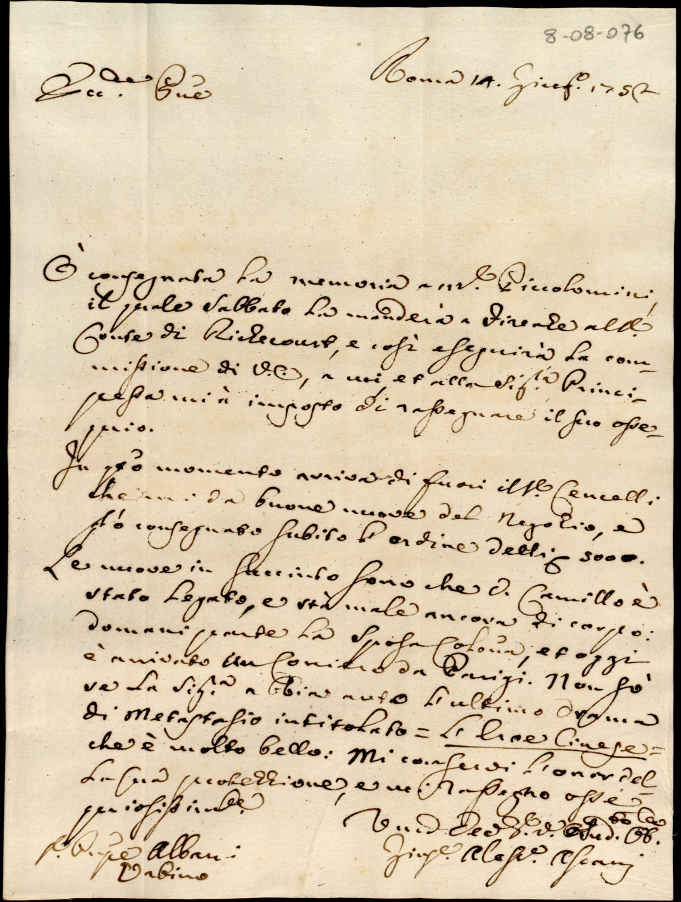 8-08-076
Roma 14. Giug.o 1752
Ecc.
È consegnata la memoria a Piccolomini,
il quale sabbato la manderà a dirittura
Conte di Richecourt, e così eseguirà la com-
missione di V.E., a noi et alla Sig.ra Princi-
pessa mi à imposto di rassegnare il suo osse-
quio.
In q.to momento arriva di fuori il Sr. Cencelli
che mi da buone nuove del Negozio, e
l'ò consegnato subito l'ordine delli 3000.
Le nuove in succinto sono che D. Camillo è
stato legato, e sta male ancora di corpo:
domani parte la sposa Colonna, et oggi
è arrivato un Corriero da Parigi. Non sò
se la Sig.ra abbia auto l'ultimo drama
di Metastasio intitolato = L'Eroe Cinese =
che è molto bello: Mi conservi l'onor del-
la sua protezzione, e mi rassegno osse-
quiosissimam.te
Albani
Urbino